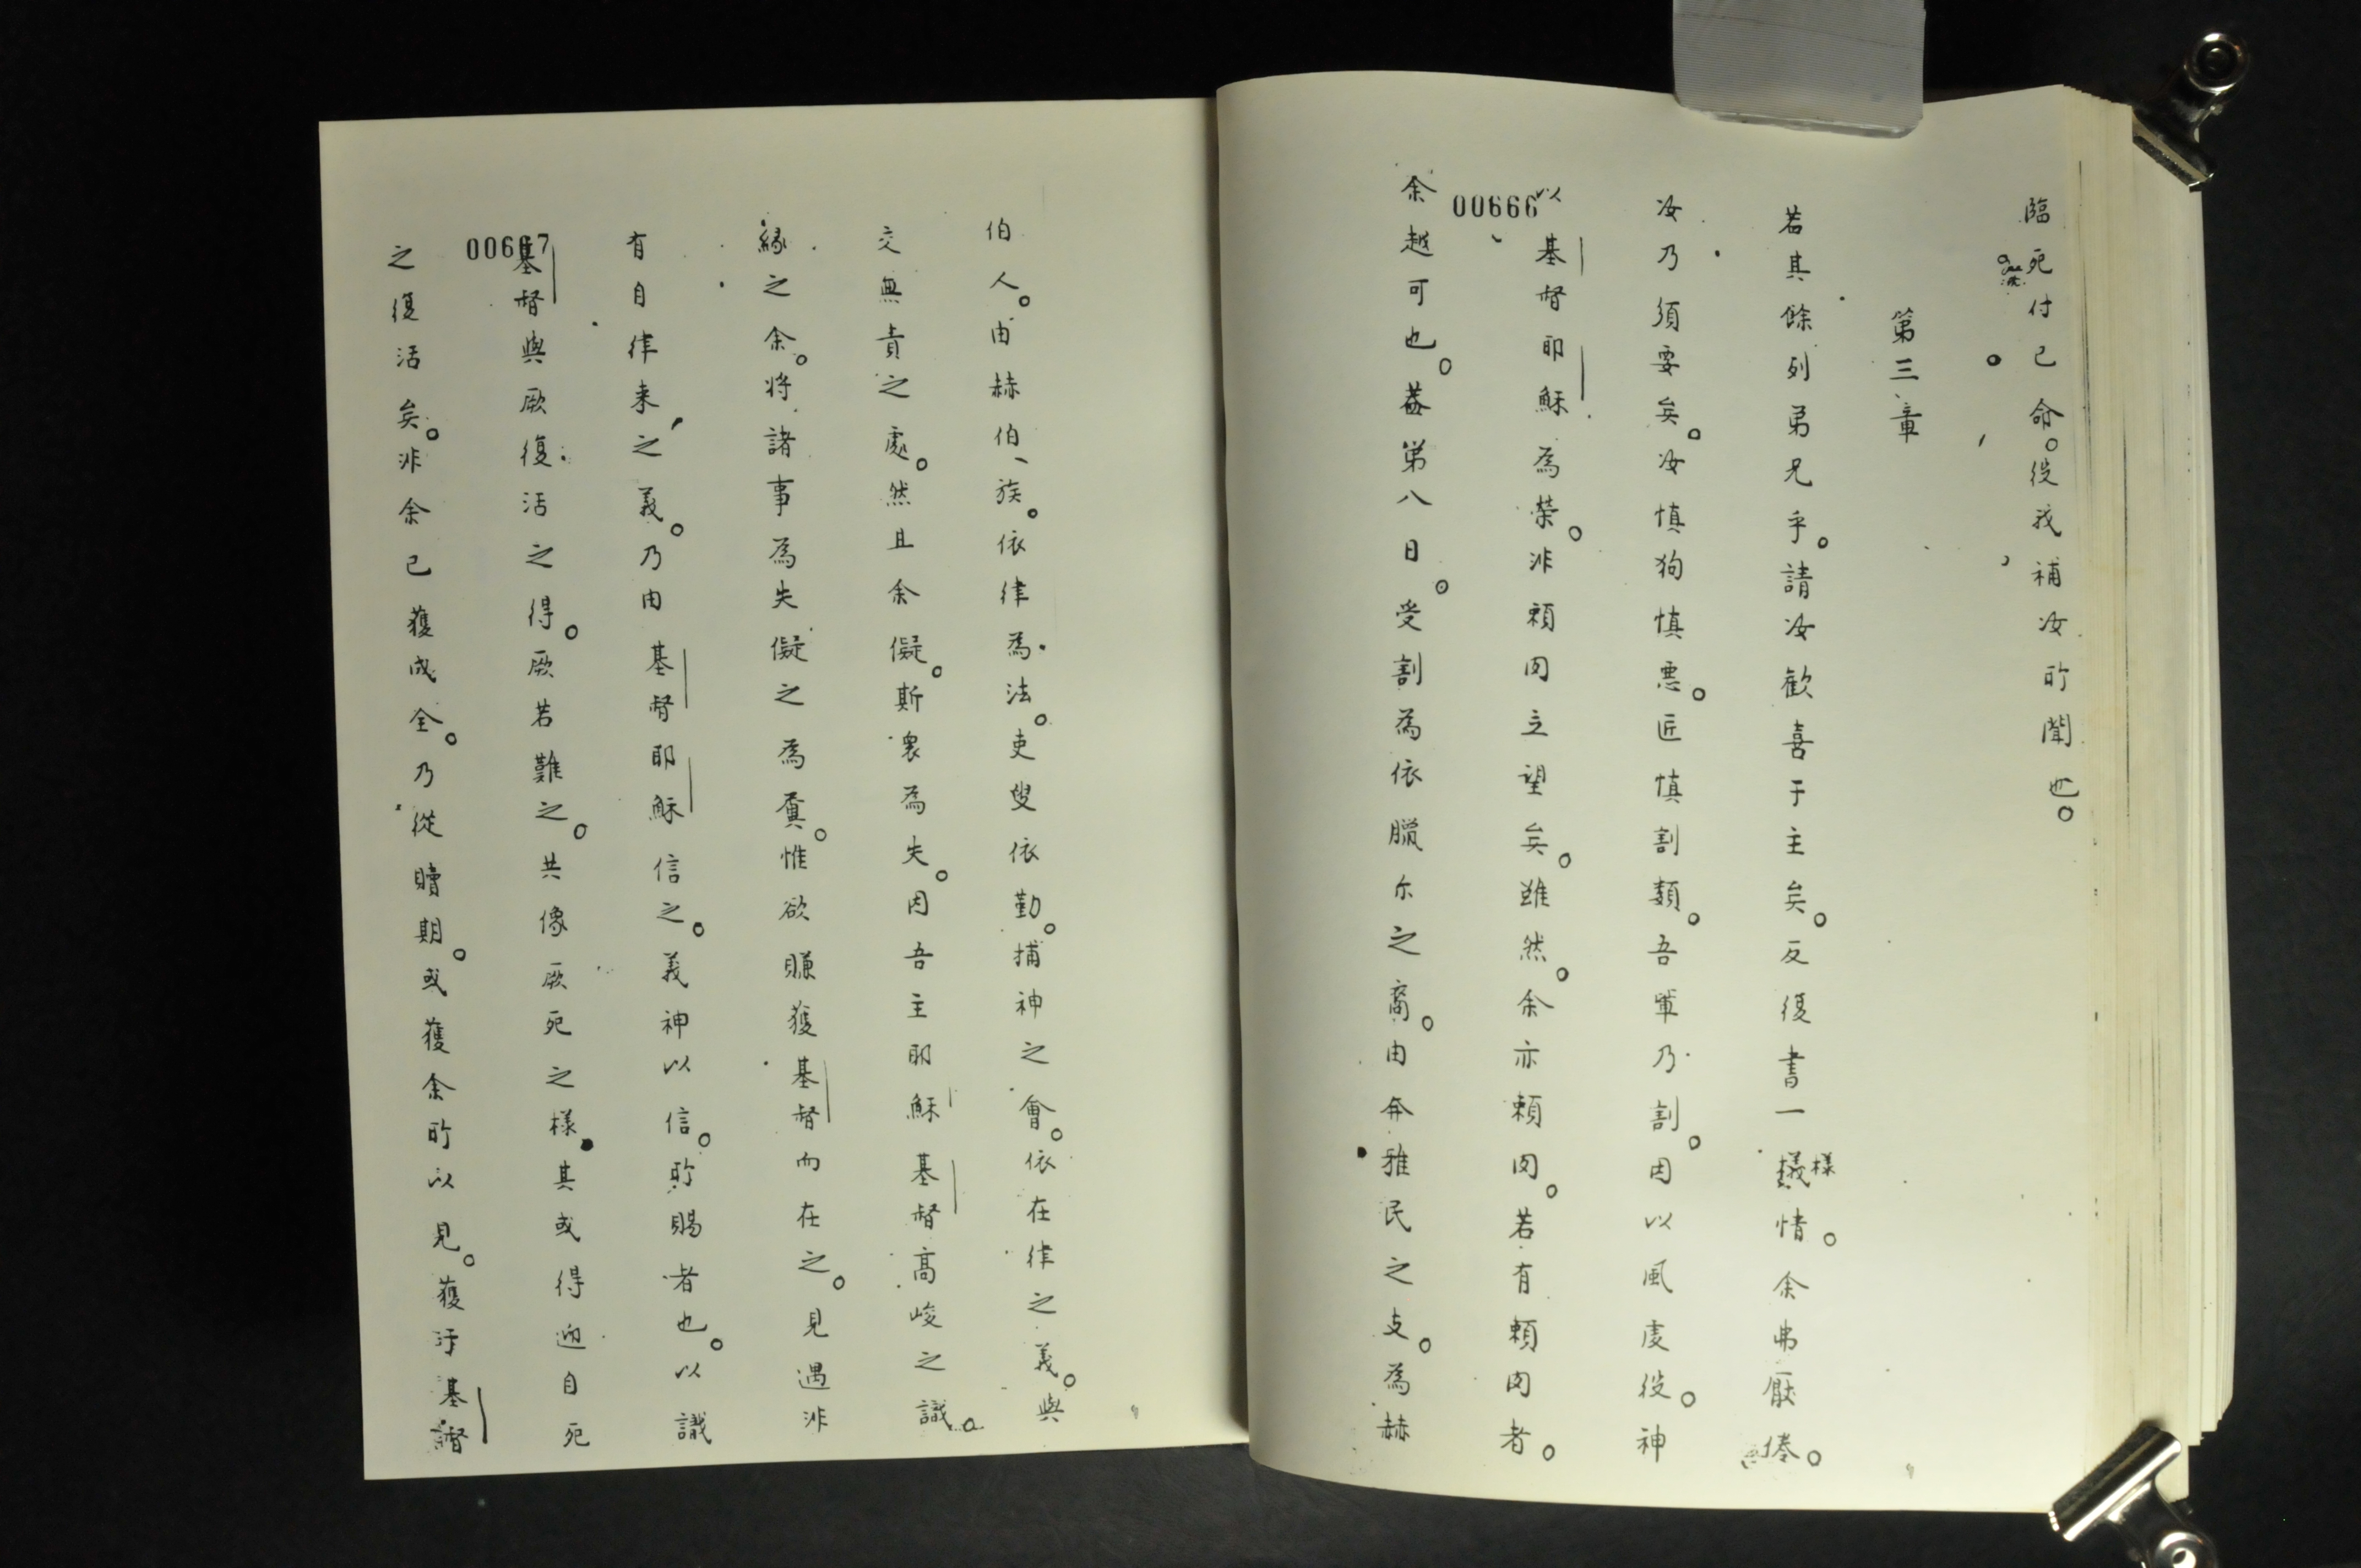 臨死付己命。役我補汝所聞也。
第三章
若其餘列弟兄乎。請汝歡喜于主矣。反復書一樣情。余弗厭倦。
汝乃須要矣。汝慎狗慎惡。匠慎割類。吾輩乃割。因以風虔役。神
以基督耶穌為榮。非賴肉立望矣。雖然。余亦賴肉。若有賴肉者。
00666
余越可也。蓋第八日。受割為依臘尔之裔。由奔雅民之支。為赫
伯人。由赫伯、族。依律為法。吏叟依勤。捕神之會。依在律之義。與
交無責之處。然且余儗。斯衆為失。因吾主耶穌基督高峻之識。
緣之余。将諸事為失儗之為糞。惟欲賺獲基督而在之。見遇非
有自律来之義。乃由基督耶穌信之。義神以信。所賜者也。以識
00667
基督與厥復活之得。厥若難之。共像厥死之樣。其或得迎自死
之復活矣。非余已獲成全。乃從贖期。或獲余所以見。獲于基督